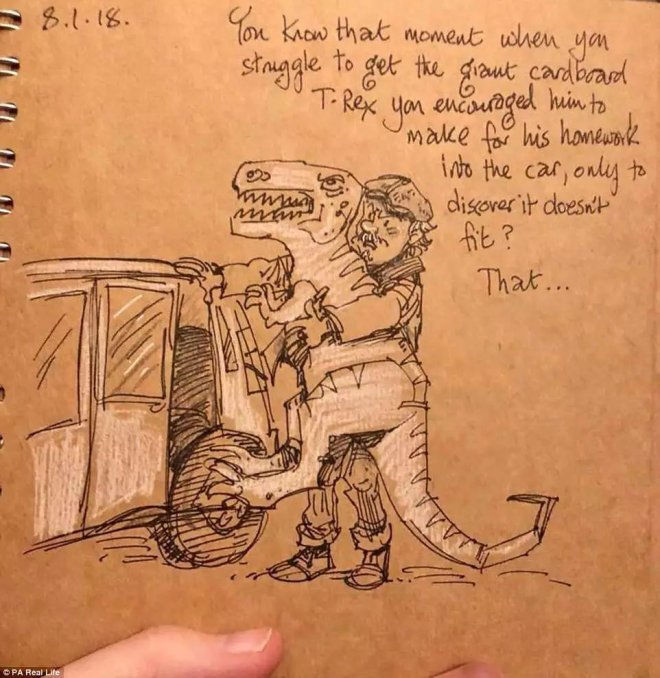 8.1.18.
You know that moment when you
struggle to get the giant cardboard
T-Rex you encouraged him to
make for his homework
into the car, only to
discover it doesn't
fit?
That...
© PA Real Life